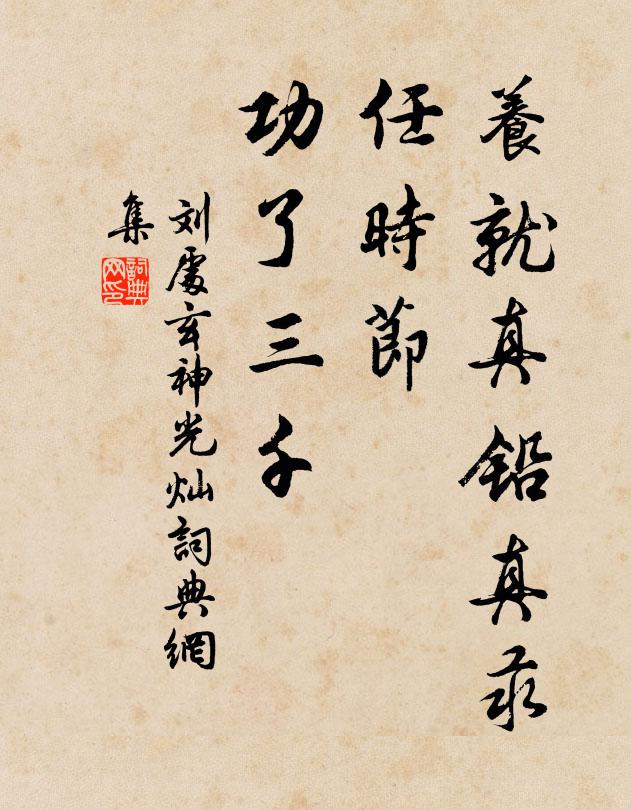 養就真鉛真汞
任時節
功了三千
刘處玄神光灿詞典網
集
詞典
网印